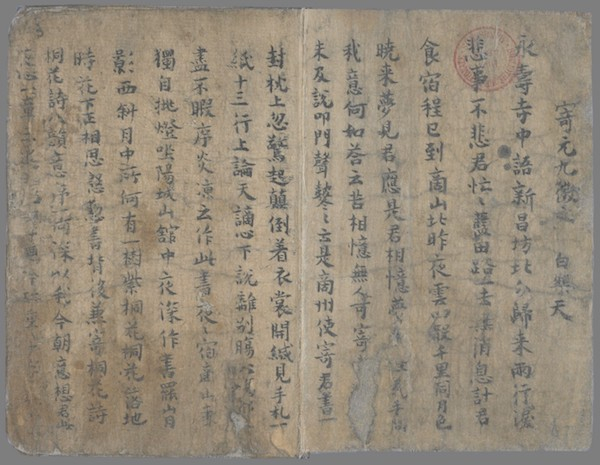 寄元九微之 白樂天
永壽寺中語新昌坊北分歸来兩行淚
悲事不悲君忙〻藍田路去無消息計君
食宿程已到商山北昨夜雲四散千里同月色
曉来夢見君應是君相憶夢手問
我意何如荅云苦相憶無人可寄
未及說叩門聲鼕〻云是商州使寄君書一
封枕上忽驚起顛倒着衣裳開緘見手札一
紙十三行上論天謫心下說離別腸
盡不暇序炎凉云作此書夜〻宿商山東
獨自挑燈坐陽城山館中夜深作書罷山月
影西斜月中所何有一樹紫桐花桐花落地
時花下正相思慇懃書背後兼寄桐花詩
桐花詩八韻意序何深以我今朝意想君此
夜心一章三